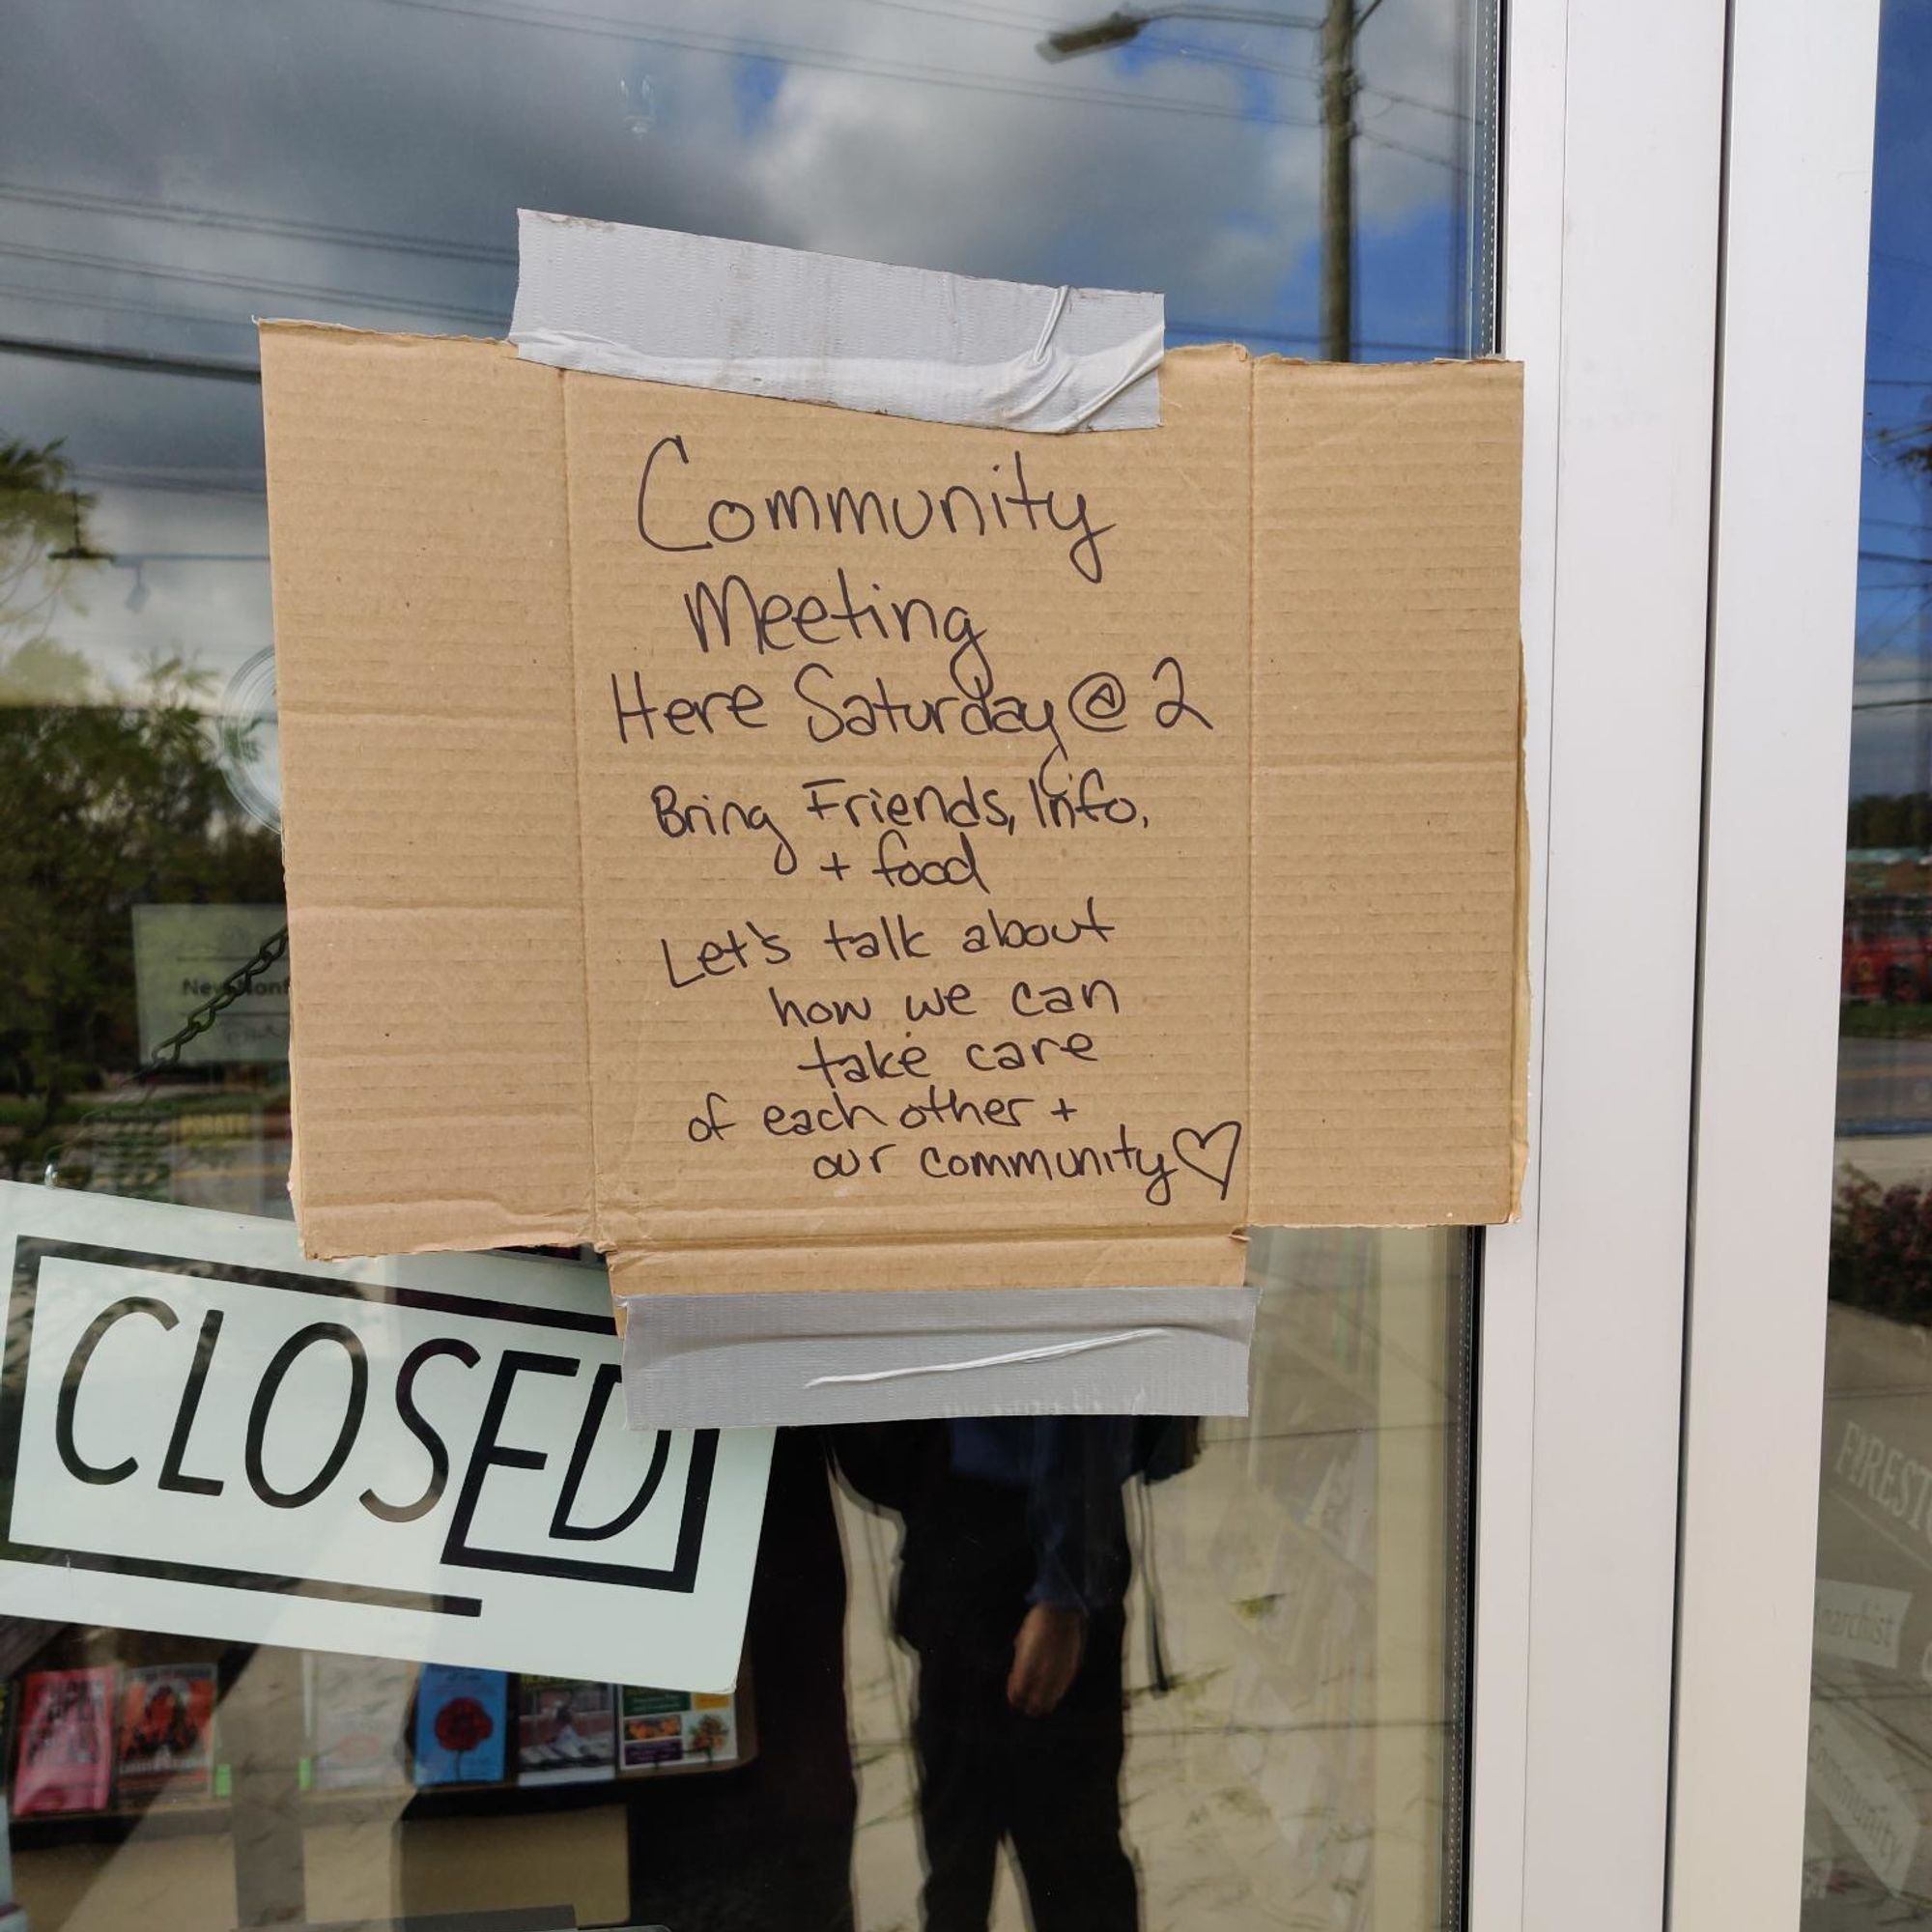 Community
Meeting
Here Saturday @ 2
Bring Friends, Info,
+ food
Let's talk about
how we can
take care
of each other +
our community♡
CLOSED